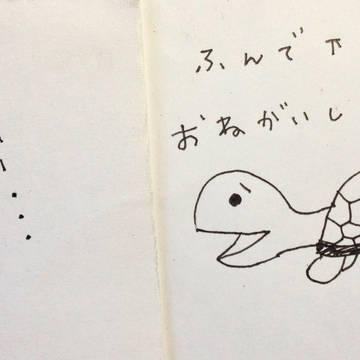 ふんで
おねがいし